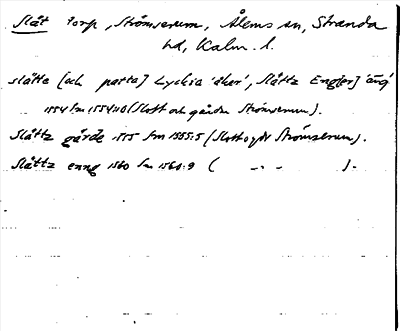 Slät torp, Strömserum, Ålems sn, Stranda
hd, Kalm. l.
slätte [och patta] Lyckia 'åker', Slättz Eng[er] 'äng'
1554 Sm 1554:10 (Slott och gården Strömserum).
Slättz gärde 1555 Sm 1555:5 (Slott o gdr Strömserum).
Slättz enng 1560 Sm 1560:9 ( –.– ).